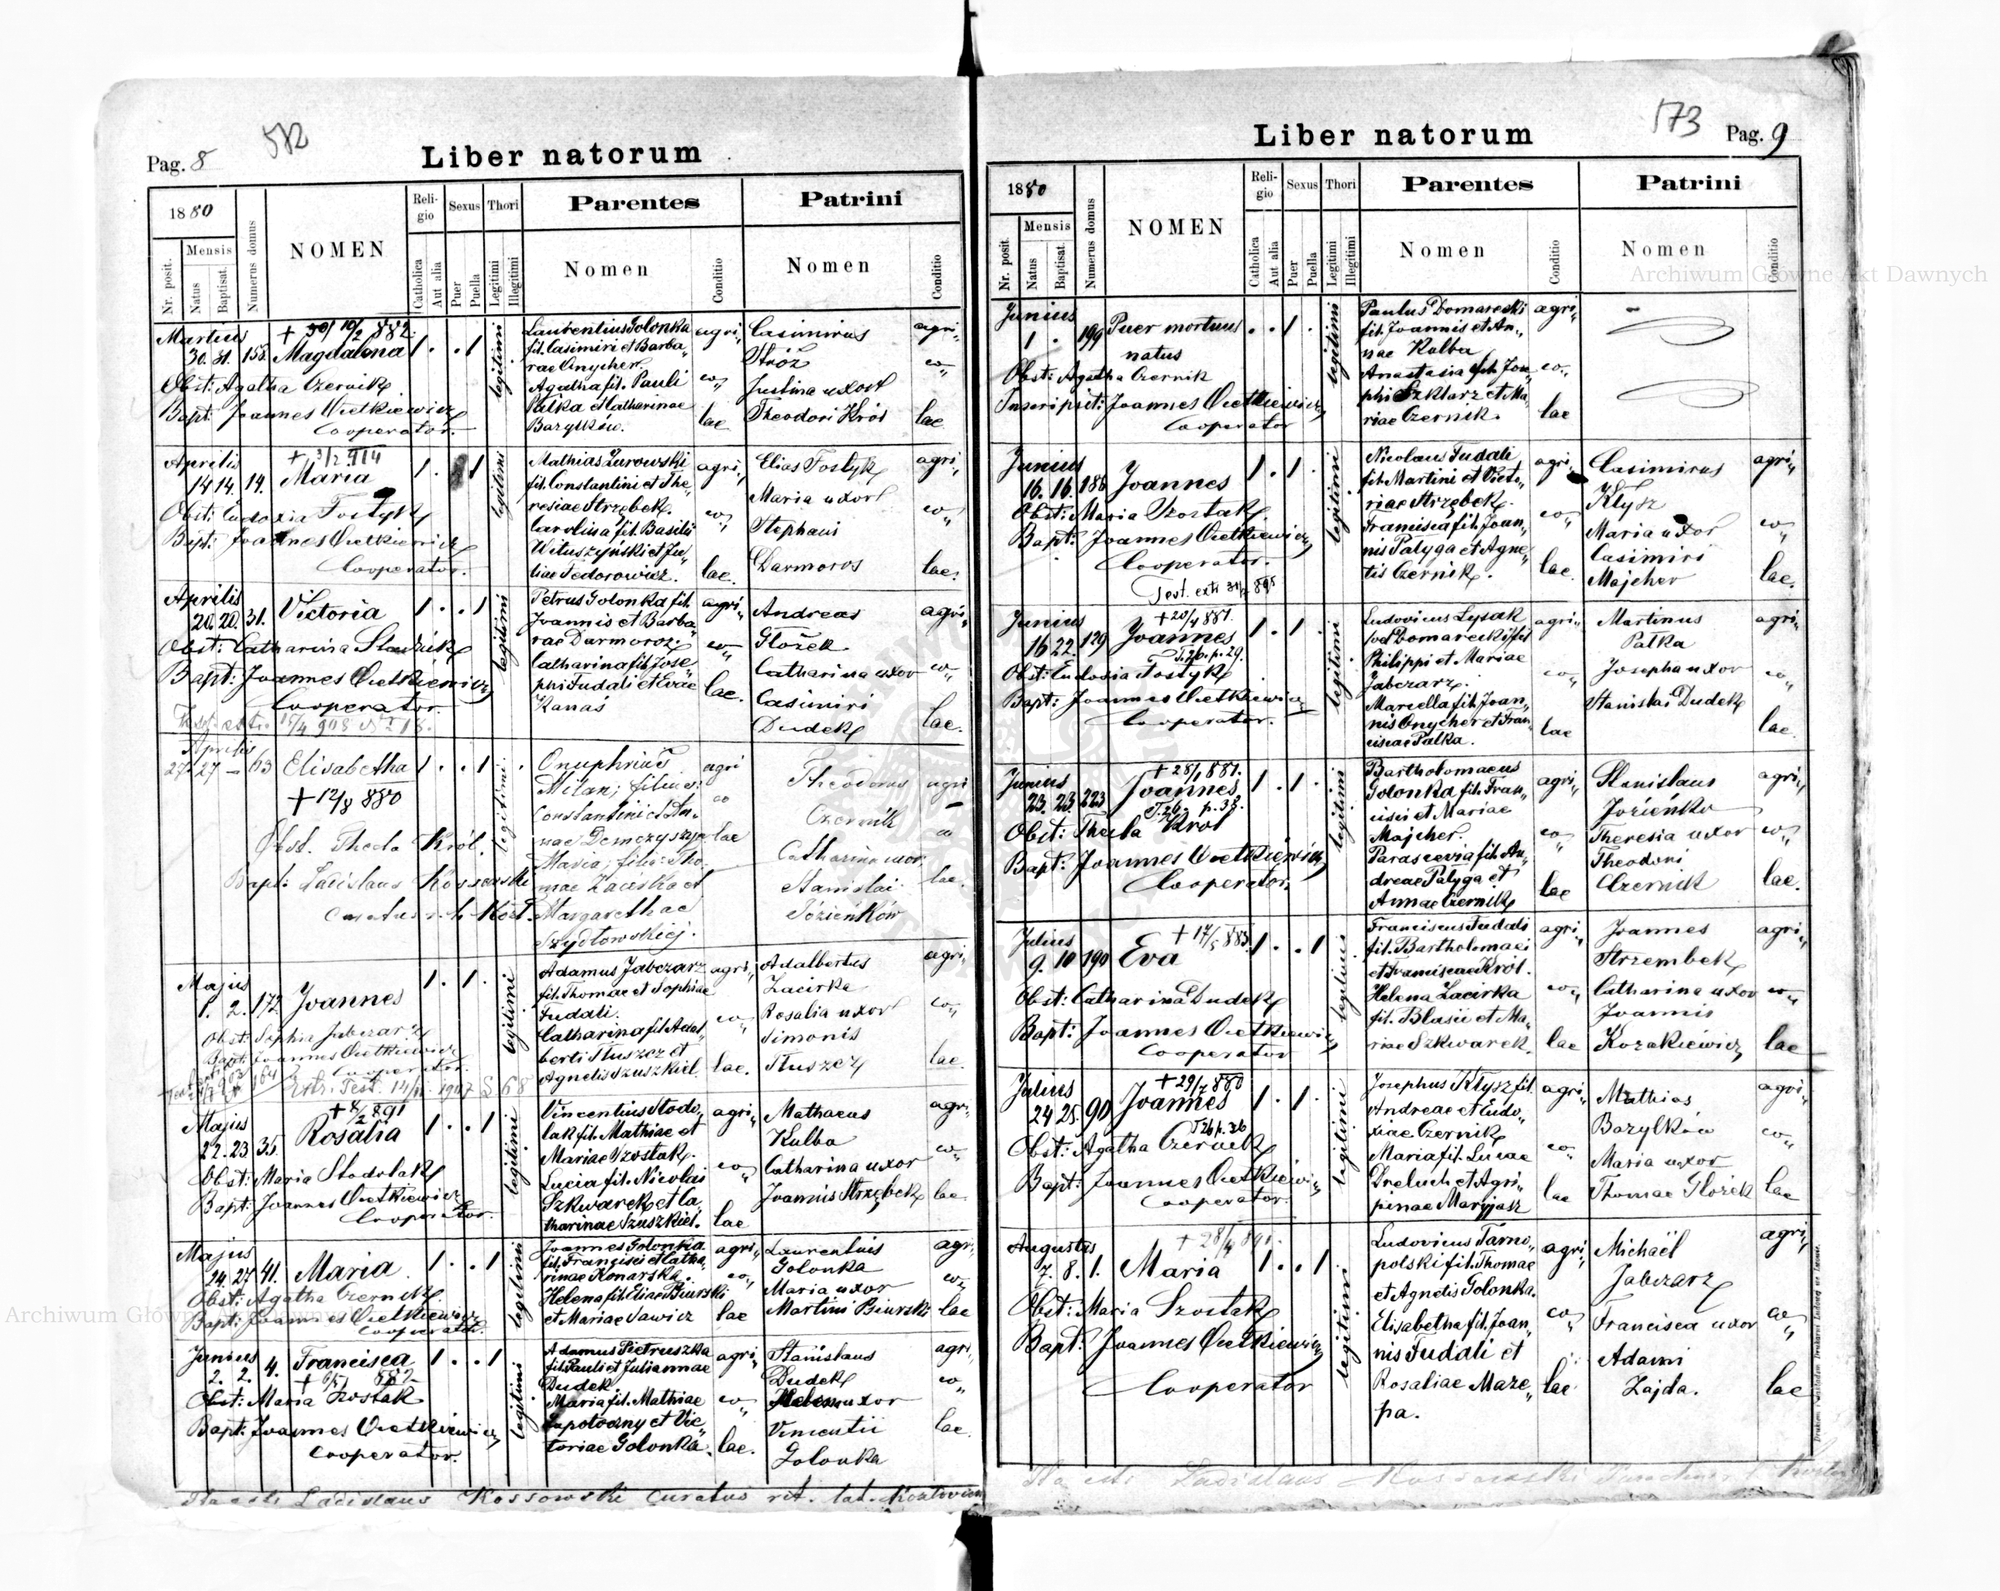 572
Liber natorum
Pag. 8
1880
Mensis
Nr. posit.
Natus
Baptisat.
Numerus domus
NOMEN
Reli-
gio
Catholica
Aut alia
Sexus
Puer
Puella
Thori
Legitimi
Illegitimi
Parentes
Nomen
Conditio
Patrini
Nomen
Conditio
Martius
30. 31. 155. Magdalena 1 . . 1
Obst: Agatha Czernik
Bapt: Joannes Oretkiewicz
Cooperator.
legitimi
Laurentius Golonka
fil. Casimiri et Barba„
rae Onycher.
Agatha fil. Pauli
Palka et Catharinae
Barylków.
agri„
co„
lae
Casimirus
Stróż
Justina uxor
Theodori Król
agri„
co„
lae
Aprilis
14 14. 14. Maria 1 . . 1
Obst: Eudoxia Fostyk
Bapt: Joannes Oretkiewicz
Cooperator.
legitimi
Mathias Żurowski
fil. Constantini et The„
resiae Strzębek.
Carolina fil. Basilii
Wituszyński et Ju„
liae Fedorowicz.
agri„
co„
lae.
Elias Fostyk
Maria uxor
Stephani
Darmoros
agri„
co„
lae.
Aprilis
20. 20. 31. Victoria 1 . . 1
Obst: Catharina
Bapt: Joannes Oretkiewicz
Cooperator.
legitimi
Petrus Golonka fil.
Joannis et Barba„
rae Darmoroz.
Catharina fil. Jose„
phi Fudali et Evae
Kanas
agri„
co„
lae.
Andreas
Głożek
Catharina uxor
Casimiri
Dudek
agri„
co„
lae.
Aprilis
27. 27 - 63 Elisabetha 1 . . 1
+ 12/8 880
Obst. Thecla Król.
Bapt: Ladislaus Kossowski
legitimi
Onuphrius
Milan; filius
Constantini et An-
nae Demczyszyn
Maria; filia Tho-
mae Zacirka et
Margarethae
Szydłowskiej.
agri
co
lae
Theodorus
Czernik
Catharina uxor
Stanislai
Józieńków
agri
co
lae.
Majus
1. 2. 172 Joannes 1 . 1 .
Obst: Sophia Jabczarz
Bapt: Joannes Oretkiewicz
Cooperator.
legitimi
Adamus Jabczarz
fil. Thomae et Sophiae
Fudali.
Catharina fil. Adal„
berti Tłuszcz et
Agnetis Szuszkiel.
agri„
co„
lae.
Adalbertus
Zacirka
Rosalia uxor
Simonis
Tłuszcz
agri„
co„
lae.
Majus
22. 23 35. Rosalia 1 . . 1
Obst: Maria Stodolak
Bapt: Joannes Oretkiewicz
Cooperator.
legitimi
Vincentius Stodo„
lak fil. Mathiae et
Mariae Szostak.
Lucia fil. Nicolai
Szkwarek et Ca„
tharinae Szuszkiel.
agri„
co„
lae
Mathaeus
Kulba
Catharina uxor
Joannis Strzębek
agri„
co„
lae
Majus
24. 27 41. Maria 1 . . 1
Obst: Agatha Czernik
Bapt: Joannes Oretkiewicz
Cooperator.
legitimi
Joannes Golonka
fil. Francisci et Catha„
rinae Konarska.
Helena fil. Eliae Biurski
et Mariae Sawicz
agri„
co„
lae
Laurentius
Golonka
Maria uxor
Martini Biurski
agri„
co„
lae
Junius
2. 2. 4. Francisca 1 . . 1
Obst: Maria Szostak
Bapt: Joannes Oretkiewicz
Cooperator.
legitimi
Adamus Pietruszka
fil. Pauli et Juliannae
Dudek
Maria fil. Mathiae
Zapotoczny et Vic„
toriae Golonka.
agri„
co„
lae.
Stanislaus
Dudek
Helena uxor
Vincentii
Golonka
agri„
co„
lae.
Ita est Ladislaus Kossowski Curatus rit. lat.
Liber natorum
173
Pag. 9
1880
Mensis
Nr. posit.
Natus
Baptisat.
Numerus domus
NOMEN
Reli-
gio
Catholica
Aut alia
Sexus
Puer
Puella
Thori
Legitimi
Illegitimi
Parentes
Nomen
Conditio
Patrini
Nomen
Conditio
Junius
1 . 199 Puer mortuus . . 1 .
natus
Obst: Agatha Czernik
Inscripsit: Joannes Oretkiewicz
Cooperator
legitimi
Paulus Domarecki
fil. Joannis et An„
nae Kulba
Anastasia fil. Jose„
phi Szklarz et Ma„
riae Czernik.
agri„
co„
lae
Junius
16. 16. 186 Joannes 1 . 1 .
Obst: Maria Szostak.
Bapt: Joannes Oretkiewicz
Cooperator.
legitimi
Nicolaus Fudali
fil. Martini et Victo„
riae Strzębek.
Francisca fil. Joan„
nis Pałyga et Agne„
tis Czernik.
agri„
co„
lae.
Casimirus
Kłysz
Maria uxor
Casimiri
Majcher
agri„
co„
lae.
Junius
16 22. 129 Joannes 1 . 1 .
+ 20/4 881.
T. 26. p. 29.
Obst: Eudosia Fostyk
Bapt: Joannes Oretkiewicz
Cooperator.
legitimi
Ludovicus Lysak
vel Domarecki fil
Philippi et Mariae
Jabczarz.
Marcella fil. Joan„
nis Onycher et Fran„
ciscae Palka.
agri„
co„
lae
Martinus
Palka
Josepha uxor
Stanislai Dudek
agri„
co„
lae.
Junius
23. 23 223 Joannes 1 . 1 .
+ 28/1 881.
Obst: Thecla Król
Bapt: Joannes Oretkiewicz
Cooperator.
legitimi
Bartholomaeus
Golonka fil. Fran„
cisci et Mariae
Majcher.
Parascevia fil. An„
dreae Pałyga et
Annae Czernik
agri„
co„
lae
Stanislaus
Józieńko
Theresia uxor
Theodori
Czernik
agri„
co„
lae.
Julius
9. 10 190 Eva 1 . . 1
+ 17/5 883.
Obst: Catharina Dudek
Bapt: Joannes Oretkiewicz
Cooperator
legitimi
Franciscus Fudali
fil. Bartholomaei
et Franciscae Król.
Helena Zacirka
fil. Blasii et Ma„
riae Szkwarek.
agri„
co„
lae
Joannes
Strzembek
Catharina uxor
Joannis
Kozakiewicz
agri„
co„
lae
Julius
24 25. 90 Joannes 1 . 1 .
+ 29/7 880
T 26 p. 26
Obst: Agatha Czernik
Bapt: Joannes Oretkiewicz
Cooperator
legitimi
Josephus Kłysz fil.
Andreae et Eudo„
xiae Czernik
Maria fil. Lucae
Dreluch et Agri„
pinae Maryjasz
agri„
co„
lae
Mathias
Barylków
Maria uxor
Thomae Głożek
agri„
co„
lae
Augustus
7. 8. 1. Maria 1 . . 1
Obst: Maria Szostak
Bapt: Joannes Oretkiewicz
Cooperator
legitimi
Ludovicus Tarno„
polski fil. Thomae
et Agnetis Golonka.
Elisabetha fil. Joan„
nis Fudali et
Rosaliae Maze„
pa.
agri„
co„
lae
Michaël
Jabczarz
Francisca uxor
Adami
Zajda.
agri„
co„
lae
Ita est Ladislaus Kossowski
Archiwum Główne Akt Dawnych